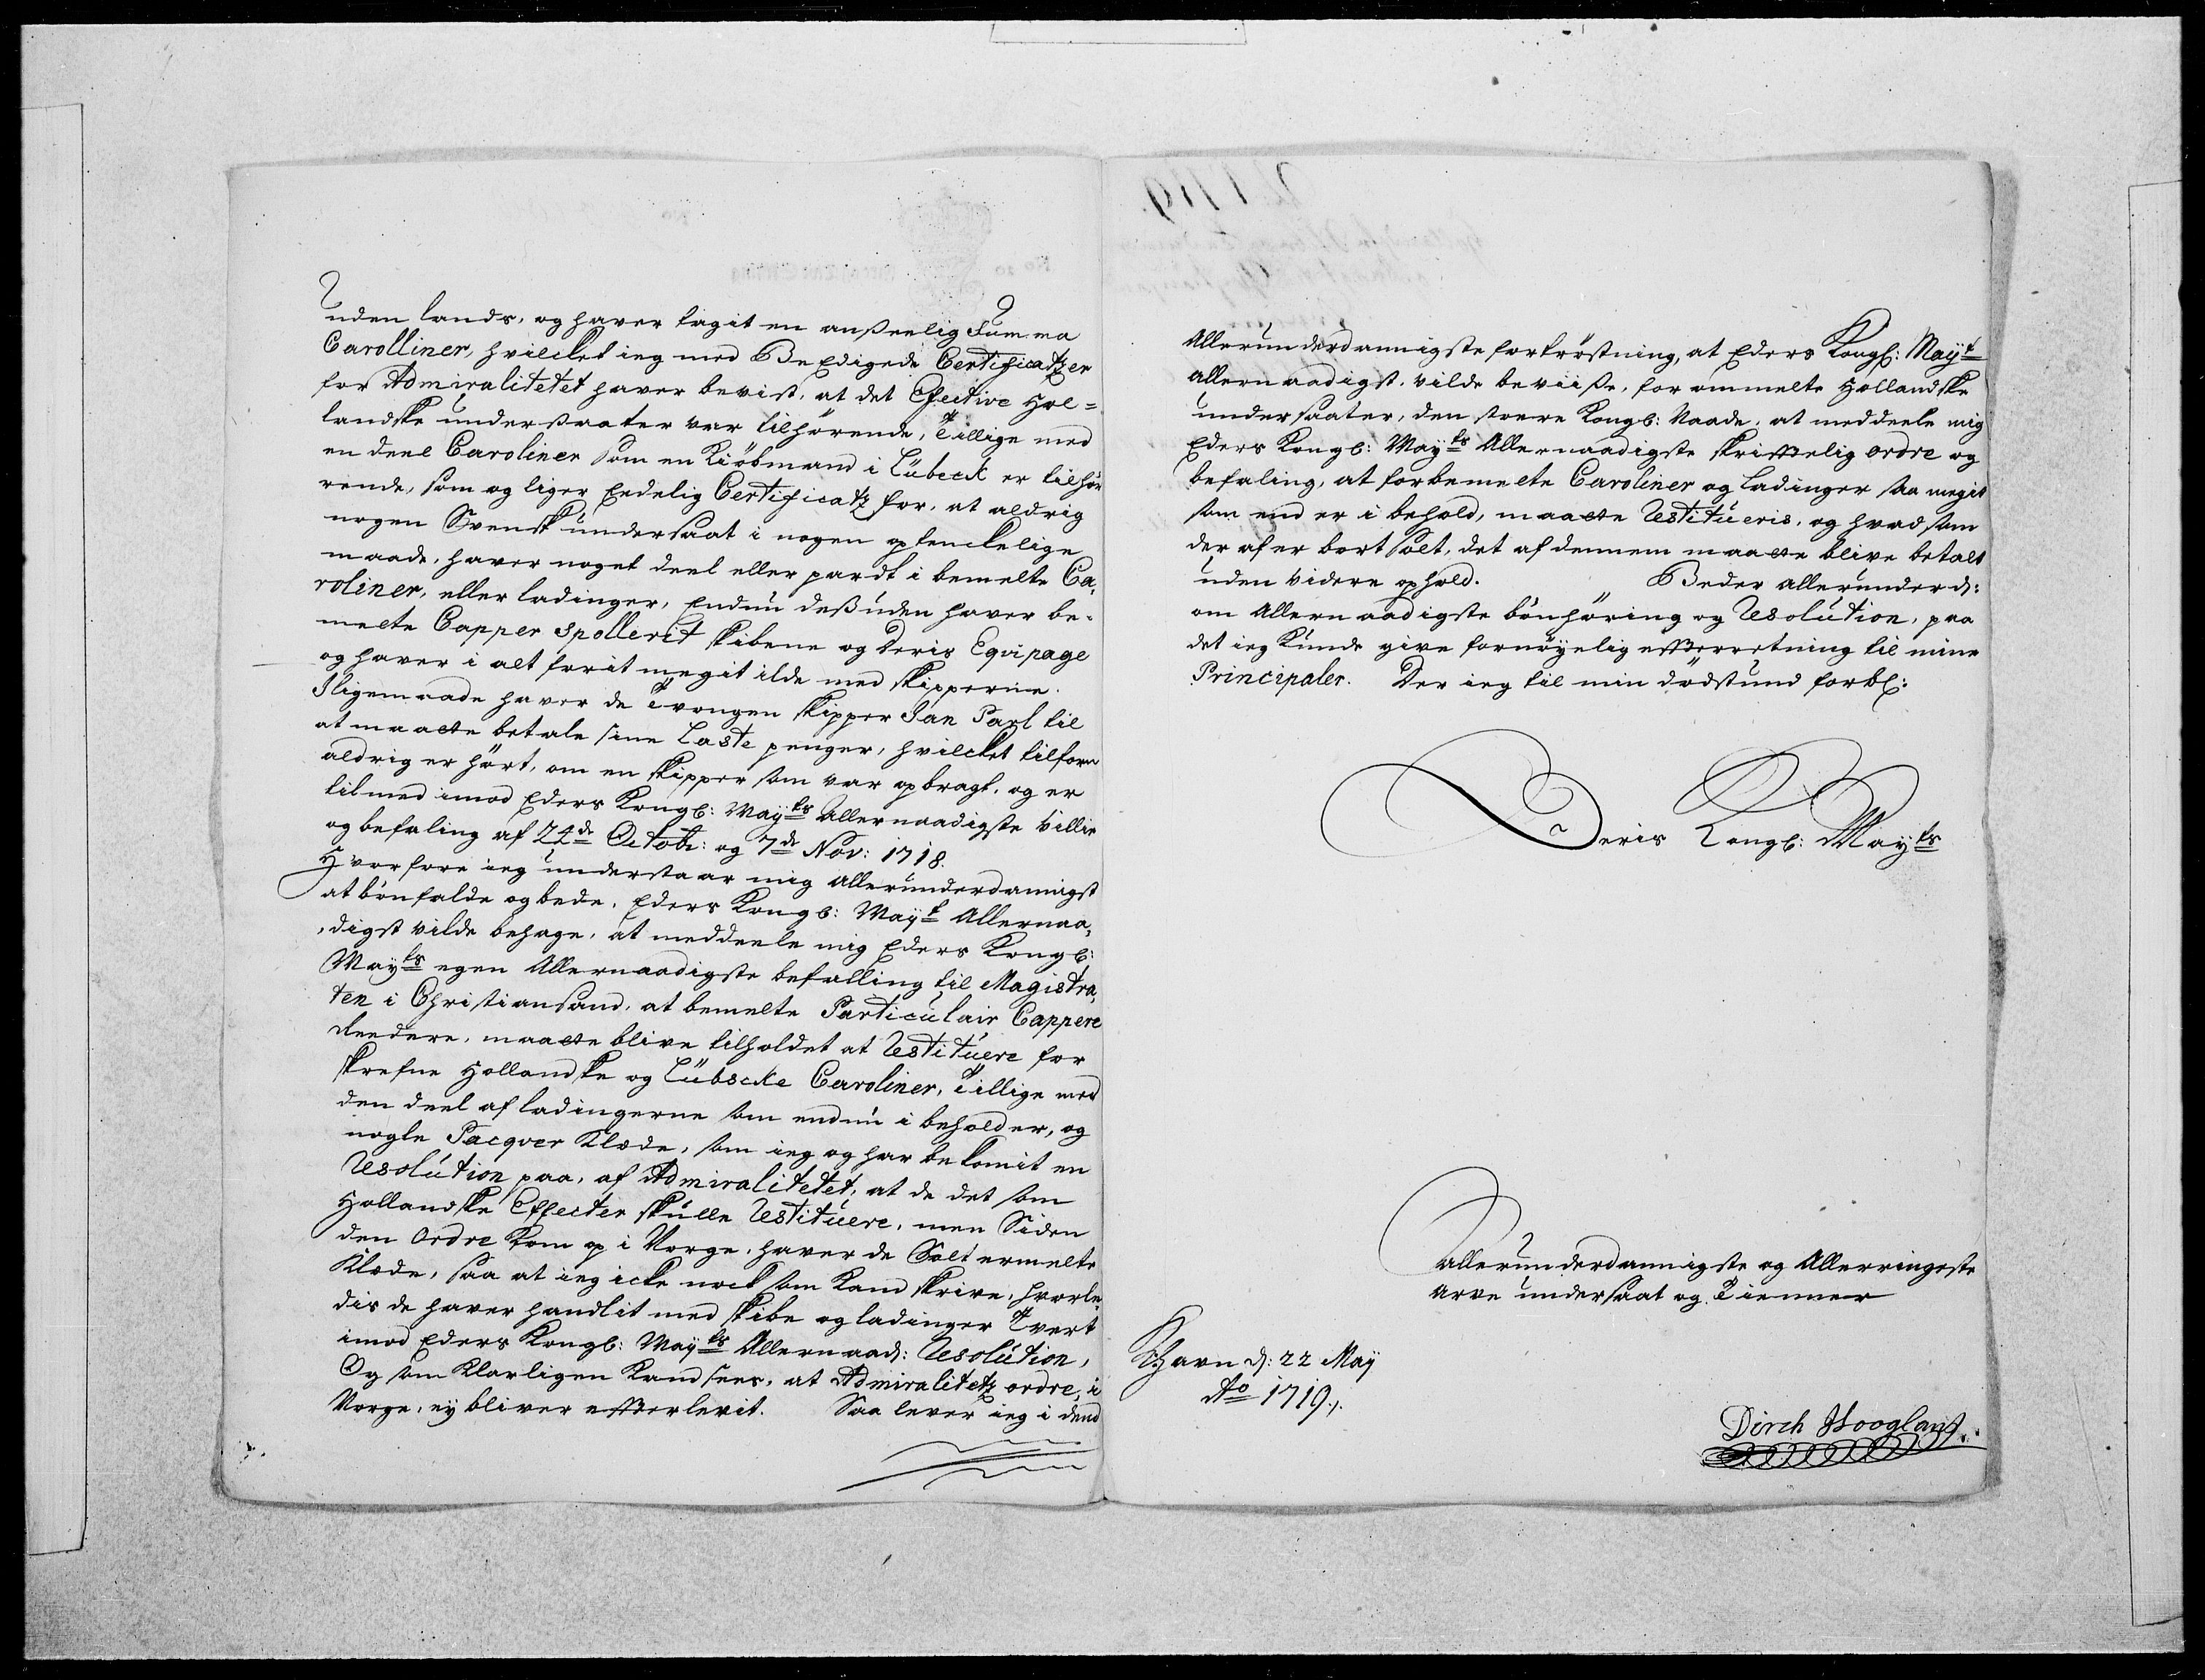 uden lands, og haver tagit en anßeelig Summa
Carolliner, hvilcket ieg med Be Edigede Certificatzer
for Admiralitetet haver bevist, at det Efective Hol=
landske undersaater var tilhörende, Tillige med
en deel Caroliner som en Kiöbmand i Lübeck er tilhör
rende, som og liger Eedelig Certificatz for, at aldrig
nogen Svensk undersaat i nogen optenckelige
maade, haver noget deel eller pardt i bemelte Ca,
roliner, eller ladinger, Endnu desuden haver be-
melte Capper Spollerit skibene og deris Eqvipage
og haver i alt farit megit ilde med skipperne.
Iligemaade haver de Tvongen skipper Jan Parl til
at maatte betale sine Laste penger, hvilcket tilforn
aldrig er hört, om en skipper som var opbragt, og er
tilmed imod Eders Kongl: Mayts Allernaadigste Villie
og befaling af 24de Octobr: og 7de Nov: 1718.
Hvorfore ieg understaar mig Allerunderdanigst
at bönfalde og bede, Eders Kongl: Mayt Allernaa,
,digst vilde behage, at meddeele mig Eders Kongl:
Mayts egen Allernaadigste befalling til Magistra,
ten i Christiansand, at bemelte Particulair Cappere
Reedere, maatte blive tilholdet at Restituere for
skrefne Hollandske og Lübscke Caroliner, Tillige med
den deel af ladingerne som endnu i behold er, og
nogle Pacqver Klæde, som ieg og har bekomit en
Resolution paa, af Admiralitetet, at de det som
Hollandske Effecter skulle Restituere, men Siden
den Ordre kom op i Norge, haver de Solt ermelte
Klæde, saa at ieg icke nock som kand skrive, hvorle,
dis de haver handlit med skibe og ladinger Tvert
imod Eders Kongl: Mayts Allernaad: Resolution,
Og som Klarligen kand sees, at Admiralitetz ordre, i
Norge, ey bliver efterlevit. Saa lever ieg i dend
Allerunderdannigste fortröstning, at Eders Kongl: Mayt
allernaadigst vilde beviise, for ommelte Hollandske
undersaater, den store Kongl: Naade, at meddeele mig
Eders Kongl: Mayts Allernaadigste skriftelig ordre og
befaling, at forbemelte Caroliner og Ladinger saa megit
som end er i behold, maatte Restitueris, og hvad som
der af er bort solt, det af dennem maatte blive betalt
uden videre ophold. Beder allerunderd:
om Allernaadigste bönhöring og Resolution, paa
det ieg kunde give fornöyelig efterretning til mine
Principaler. Der ieg til min dödstund forbl:
Deris Kongl: Mayts
allerunderdannigste og Allerringeste
arve undersaat og Tienner
Khavn d: 22 May
Ao 1719.
Dirch Hooglant